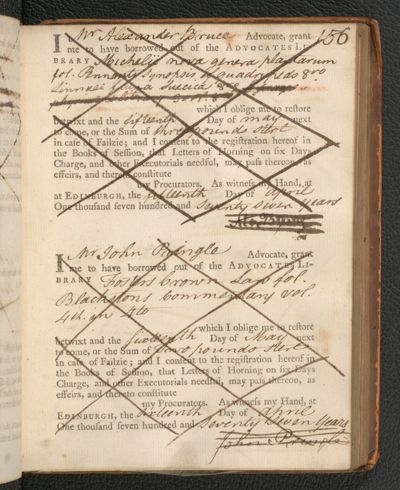 156
I Mr Alexander Bruce Advocate, grant
me to have borrowed out of the ADVOCATES LI-
BRARY Michelii nova genera plantarum
fol. Pennants Synopsis of Quadrupeds 8vo
Linnaei fauna Suecica 8vo
which I oblige me to restore
betwixt and the fifteenth Day of May next
to come, or the Sum of three pounds Sterl.
in case of Failzie; and I consent to the registration hereof in
the Books of Session, that Letters of Horning on six Days
Charge, and other Executorials needful, may pass thereon, as
effeirs, and thereto constitute
my Procurators. As witness my Hand, at
at EDINBURGH, the fifteenth Day of April
One thousand seven hundred and Seventy Seven years
I Mr John Pringle Advocate, grant
me to have borrowed out of the ADVOCATES LI-
BRARY Fosters Crown Law fol.
Blackstons Commentary vol.
4th in 4to
which I oblige me to restore
betwixt and the Sixteenth Day of May next
to come, or the Sum of two pounds Sterl.
in case of Failzie; and I consent to the registration hereof in
the Books of Session, that Letters of Horning on six Days
Charge, and other Executorials needful, may pass thereon, as
effeirs, and thereto constitute
my Procurators. As witness my Hand, at
EDINBURGH, the sixteenth Day of April
One thousand seven hundred and Seventy Seven Years
John Pringle